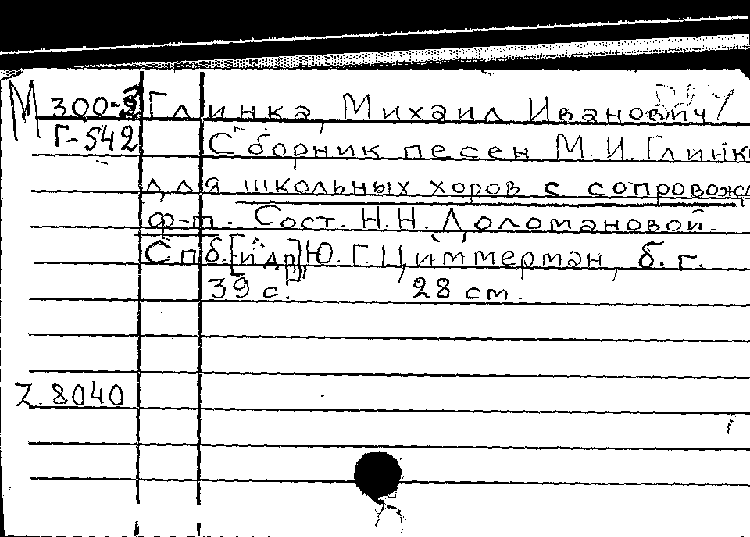 М 300-2 Глинка, Михаил Иванович
Г-542 Сборник песен М.И. Глинк
для школьных хоров с сопровож
ф-п. Сост. Н.Н. Доломановой.
Спб. [и др] Ю.Г. Циммерман, б.г.
39 с. 28 см.
Z. 8040